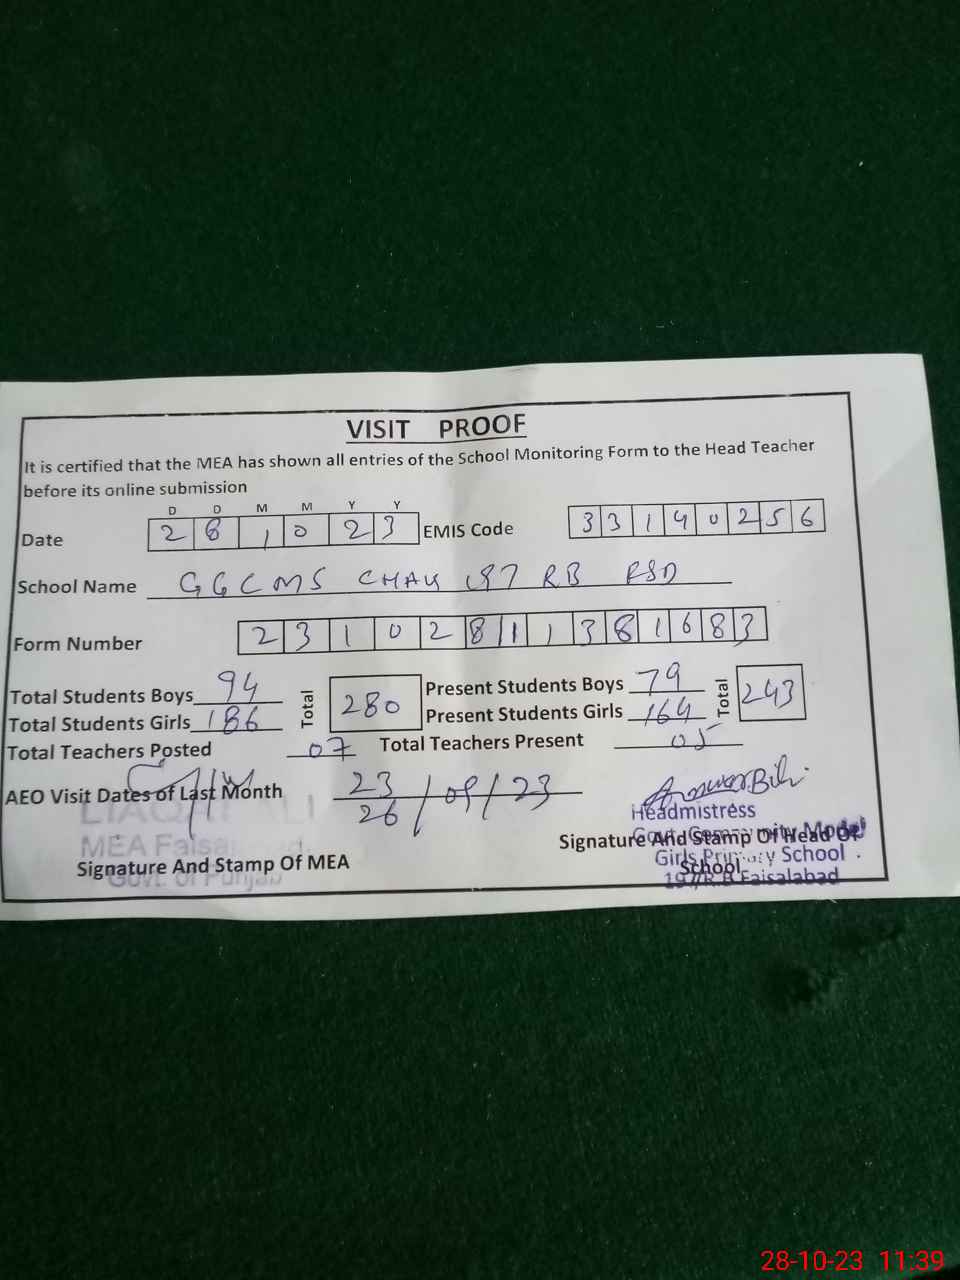 VISIT PROOF
It is certified that the MEA has shown all entries of the School Monitoring Form to the Head Teacher
before its online submission
D D M M Y Y
Date 28 10 23 EMIS Code 33140256
School Name GGCMS CHAK 197 RB FSD
Form Number 23102811381683
Total Students Boys 94 Total 280 Present Students Boys 79 Total 243
Total Students Girls 186 Present Students Girls 164
Total Teachers Posted 07 Total Teachers Present 05
AEO Visit Dates of Last Month 23/26/09/23
LIAQAT ALI
MEA Faisalabad.
Govt. of Punjab
Signature And Stamp Of MEA
Headmistress
Govt. Community Model
Girls Primary School
197/R.B Faisalabad
Signature And Stamp Of Head Of
School
28-10-23 11:39